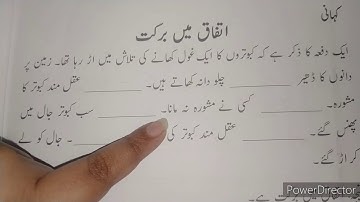 کہانی
اتفاق میں برکت
ایک دفعہ کا ذکر ہے کہ کبوتروں کا ایک غول کھانے کی تلاش میں اڑ رہا تھا۔ زمین پر
دانوں کا ڈھیر ________ چلو دانہ کھاتے ہیں۔ ________ عقل مند کبوتر کا
مشورہ۔ ________ کسی نے مشورہ نہ مانا۔ ________ سب کبوتر جال میں
پھنس گئے۔ ________ عقل مند کبوتر کی ________۔ جال کو لے
کر اڑ گئے۔
میں برکت ہے۔
PowerDirector